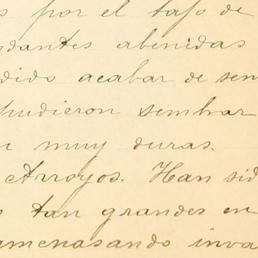 s por el tajo de
ndantes abenidas
dido acabar de sem
pudieron sembrar
muy duras.
Arroyos. Han sid
tan grandes en
amenasando inva